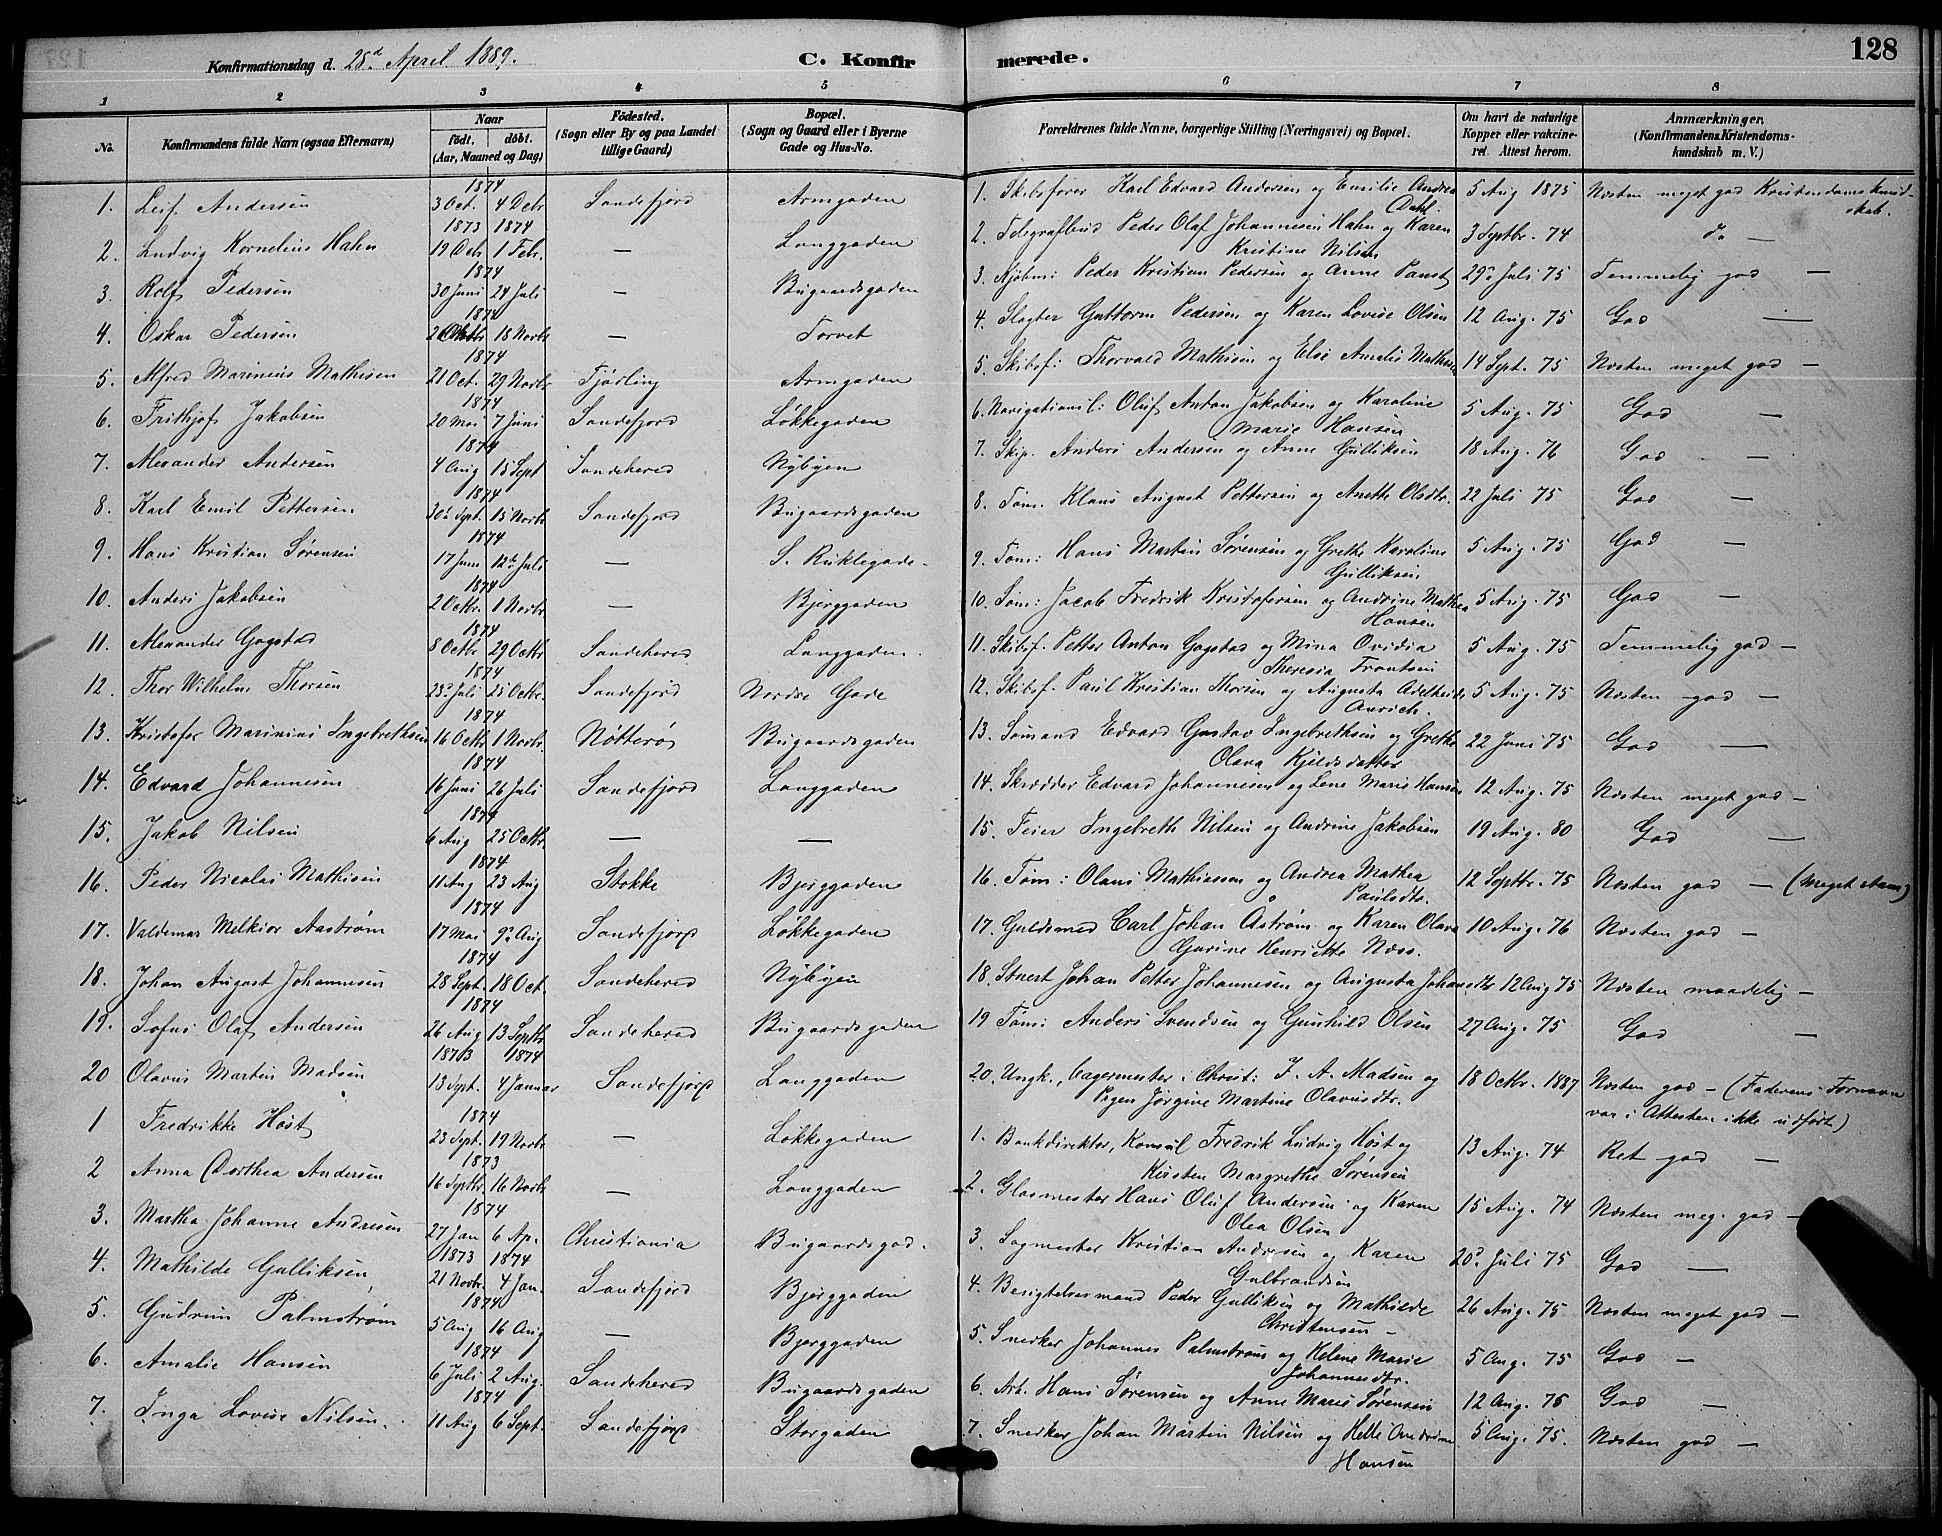 128
Konfirmationsdag d. 28d April 1889. C. Konfirmerede.
1 2 3 4 5 6 7 8
No. Konfirmandens fulde Navn (ogsaa Efternavn) Naar født. døbt. (Aar, Maaned og Dag) Fødested. (Sogn eller By og paa Landet tillige Gaard) Bopæl. (Sogn og Gaard eller i Byerne Gade og Hus-No. Forældrenes fulde Navne, borgerlige Stilling (Næringsvei) og Bopæl. Om havt de naturlige Kopper eller vakcineret. Attest herom. Anmærkninger. (Konfirmandens Kristendomskundskab m. V.)
1. Leif Andersen 1874 3 Oct. 4 Decbr Sandefjord Armgaden 1. Skibsfører Karl Edvard Andersen og Emilie Andrea Dahl. 5 Aug 1875 Næsten meget god Kristendomskundskab.
2. Ludvig Kornelius Hahn 1873 1874 19 Octb 1 Febr. — Langgaden 2. Telegrafbud Peder Olaf Johannesen Hahn og Karen Kristine Nilsen 3 Septbr. 74 do —
3. Rolf Pedersen 1874 30 Juni 24 Juli — Bugaardsgaden 3. Kjøbm: Peder Kristian Pedersen og Anne Paust 29de Juli 75 Temmelig god —
4. Oskar Pedersen 1874 2 Octbr 18 Novbr — Torvet 4. Slagter Guttorm Pedersen og Karen Lovise Olsen 12 Aug. 75 God —
5. Alfred Marinius Mathisen 1874 21 Oct. 29 Novbr Tjølling Armgaden 5. Skibsf: Thorvald Mathisen og Else Amalie Mathisen 14 Sept. 75 Næsten meget god —
6. Frithjof Jakobsen 1874 20 Mai 7 Juni Sandefjord Løkkegaden 6. Navigationsl: Oluf Anton Jakobsen og Karoline Marie Hansen 5 Aug. 75 God —
7. Alexander Andersen 1874 4 Aug 15 Sept Sandehered Nybyen 7. Skip. Anders Andersen og Anne Gulliksen 18 Aug. 76 God —
8. Karl Emil Pettersen 1874 30te Sept. 15 Novbr Sandefjord Bugaardsgaden 8. Tøm. Klaus August Pettersen og Anette Olsdtr. 22 Juli 75 God —
9. Hans Kristian Sørensen 1874 17 Juni 12te Juli — S. Ruklegade. 9. Tøm: Hans Martin Sørensen og Grethe Karoline Gulliksen 5 Aug. 75 God —
10. Anders Jakobsen 1874 2 Octbr. 1 Novbr. — Bjerggaden 10. Søm: Jacob Fredrik Kristofersen og Andrine Mathea Hansen 5 Aug. 75 God —
11. Alexander Gogstad 1874 8 Octbr 29 Octbr Sandehered Langgaden. 11. Skibsf. Petter Anton Gogstad og Mina Ovidia Theresia Frantsen 5 Aug. 75 Temmelig god —
12. Thor Wilhelm Thorsen 1874 23de Juli 25 Octbr. Sandefjord Nordre Gade 12. Skibsf. Paul Kristian Thorsen og Augusta Adelheide Aurich. 5 Aug. 75 Næsten god —
13. Kristofer Marinius Ingebrethsen 1874 16 Octbr 1 Novbr. Nøtterø Bugaardsgaden 13. Sømand Edvard Gustav Ingebrethsen og Grethe Olava Kjeldsdatter 22 Juni 75 God —
14. Edvard Johannesen 1874 16 Juni 26 Juli Sandefjord Langgaden 14. Skrædder Edvard Johannesen og Lene Marie Hansen 12 Aug. 75 Næsten meget god —
15. Jakob Nilsen 1874 6 Aug 25 Octbr. — — 15. Feier Ingebreth Nilsen og Andrine Jakobsen 19 Aug. 80 God —
16. Peder Nicolai Mathisen 1874 11 Aug 23 Aug Stokke Bjerggaden 16. Tøm: Olaus Mathiassen og Andrea Mathea Paulsdtr. 12 Septbr. 75 Næsten god — (Meget stam)
17. Valdemar Melkior Aastrøm 1874 17 Mai 9de Aug Sandefjord Løkkegaden 17. Guldsmed Carl Johan Åstrøm og Karen Olava Gurine Henriette Næss. 10 Aug. 76 Næsten god —
18. Johan August Johannesen 1874 28 Sept. 18 Oct. Sandehered Nybyen 18. Stuert Johan Petter Johannesen og Augusta Johansdtr 12 Aug 75 Næsten maadelig —
19. Sofus Olaf Andersen 1874 26 Aug 13 Septbr Sandehered Bugaardsgaden 19 Tøm: Anders Svendsen og Gunhild Olsen 27 Aug. 75 God —
20 Olavus Martin Madsen 1873 1874 13 Sept. 4 Januar Sandefjord Langgaden 20. Ungk., bagermester i Christ: J. A. Madsen og Pigen Jørgine Martine Olavusdtr. 18 Octbr. 1887 Næsten god — (Faderens Fornavn var i Attesten ikke udført)
1 Fredrikke Høst 1874 23 Sept. 19 Novbr — Løkkegaden 1. Bankdirektør, Konsul Fredrik Ludvig Høst og Kirsten Margrethe Sørensen 13 Aug. 74 Ret god —
2 Anna Dorthea Andersen 1873 16 Septbr. 16 Novbr — Langgaden 2. Glasmester Hans Oluf Andersen og Karen Olea Olsen 15 Aug. 74 Næsten meg. god —
3. Martha Johanne Andresen 1874 27 Jan 6 Ap. Christiania Bugaardsgad. 3. Sagmester Kristian Andresen og Karen Gulbrandsen 20d Juli 75 God —
4. Mathilde Gulliksen 1873 1874 21 Novbr. 4 Jan. Sandefjord Bjerggaden 4. Besigtelsesmand Peder Gulliksen og Mathilde Christensen — 26 Aug. 75 Næsten meget god —
5. Gudrun Palmstrøm 1874 5 Aug 16 Aug — Bjerggaden 5. Snedker Johannes Palmstrøm og Helene Marie Johannesdtr. 5 Aug. 75 God —
6. Amalie Hansen 1874 6 Juli 2 Aug. Sandehered Bugaardsgaden 6. Arb. Hans Sørensen og Anne Marie Sørensen 12 Aug. 75 God —
7. Inga Lovise Nilsen. 1874 11 Aug 6 Sept. Sandefjord Storgaden 7. Snedker Johan Martin Nilsen og Helle Andrine Hansen 5 Aug. 75. Næsten god —